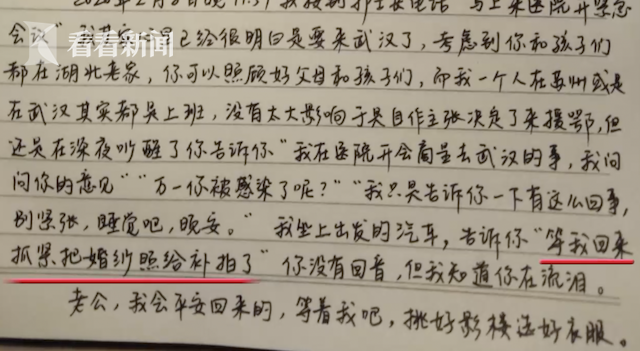 2020年2月8日晚11:57我接到护士长电话"马上来医院开紧急
会议"
看看新闻
已经很明白是要来武汉了,考虑到你和孩子们
都在湖北老家,你可以照顾好父母和孩子们,而我一个人在苏州或是
在武汉其实都是上班,没有太大影响于是自作主张决定了来援鄂,但
还是在深夜吵醒了你告诉你"我在医院开会商量去武汉的事,我问
问你的意见""万一你被感染了呢?""我只是告诉你一下有这么回事,
别紧张,睡觉吧,晚安。"我坐上出发的汽车,告诉你"等我回来
抓紧把婚纱照给补拍了"你没有回音,但我知道你在流泪。
老公,我会平安回来的,等着我吧,挑好影楼选好衣服。